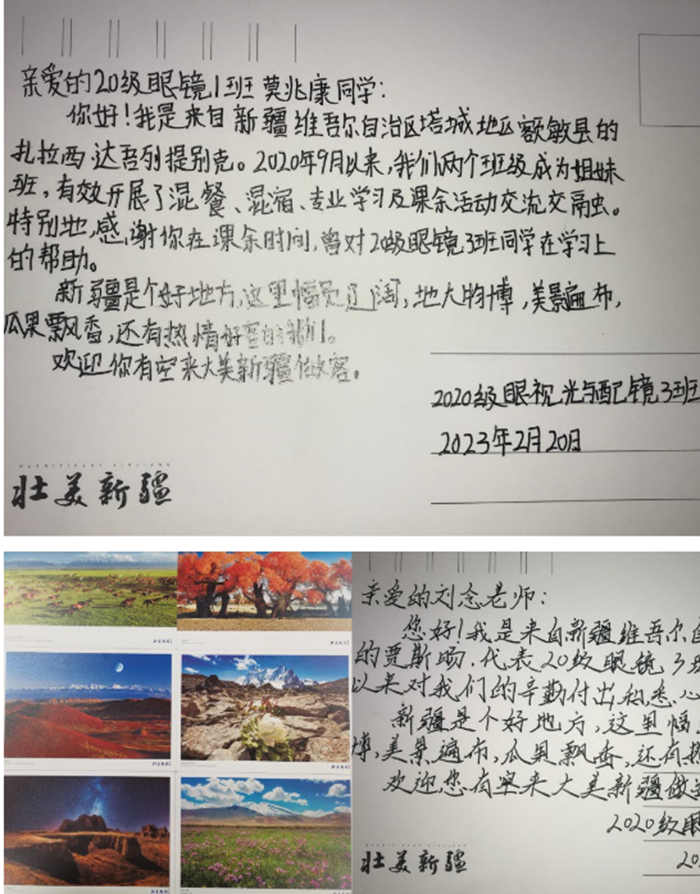 亲爱的20级眼镜1班 莫兆康同学:
你好!我是来自新疆维吾尔自治区塔城地区额敏县的
扎拉西·达吾列提别克。2020年9月以来,我们两个班级成为姐妹
班,有效开展了混餐、混宿、专业学习及课余活动交流交融。
特别地,感谢你在课余时间,曾对20级眼镜3班同学在学习上
的帮助。
新疆是个好地方,这里幅员辽阔,地大物博,美景遍布,
瓜果飘香,还有热情好客的我们。
欢迎你有空来大美新疆做客。
2020级眼视光与配镜3班
2023年2月20日
壮美新疆
亲爱的刘念老师:
您好!我是来自新疆维吾尔自
的贾斯旸,代表20级眼镜3班
以来对我们的辛勤付出和悉心
新疆是个好地方,这里幅
博,美景遍布,瓜果飘香,还有热
欢迎您有空来大美新疆做客
2020级眼
20
壮美新疆